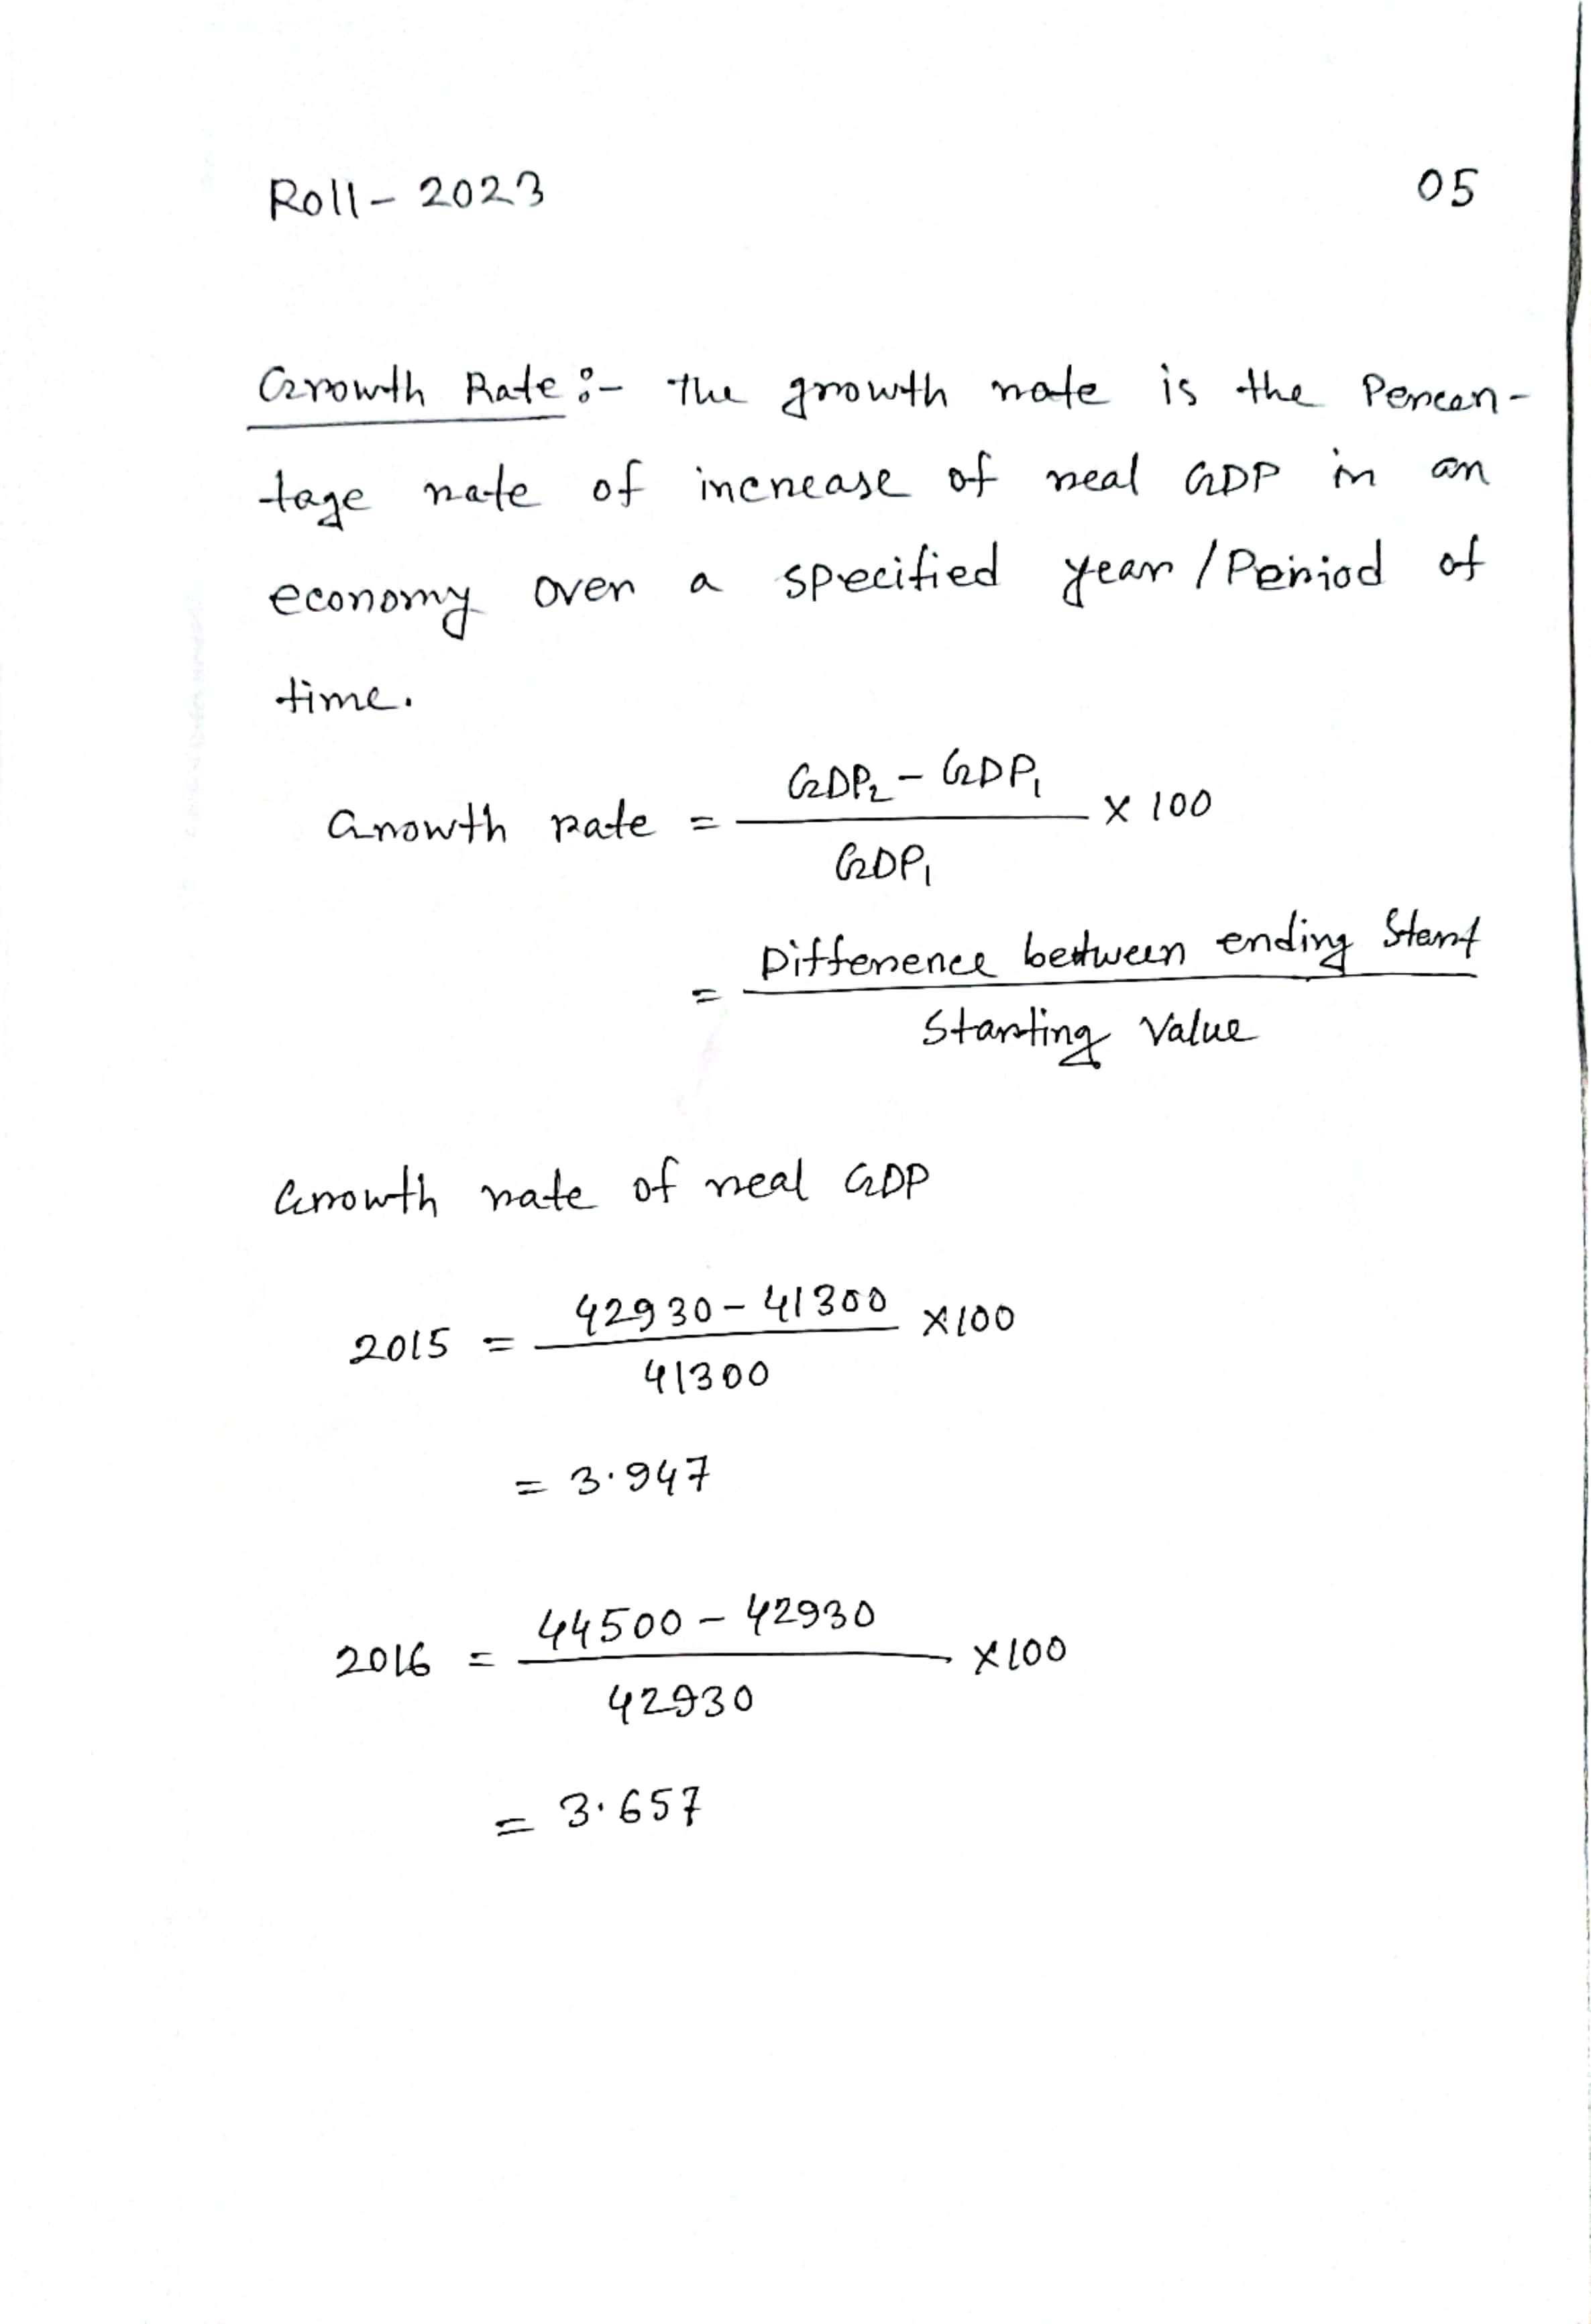 Roll- 2023
05
Growth Rate :- The growth rate is the Percen-
tage rate of increase of real GDP in an
economy over a specified year / Period of
time.
Growth rate = (GDP₂ - GDP₁) / GDP₁ × 100
= Difference between ending Start / Starting Value
Growth rate of real GDP
2015 = (42930 - 41300) / 41300 × 100
= 3.947
2016 = (44500 - 42930) / 42930 × 100
= 3.657